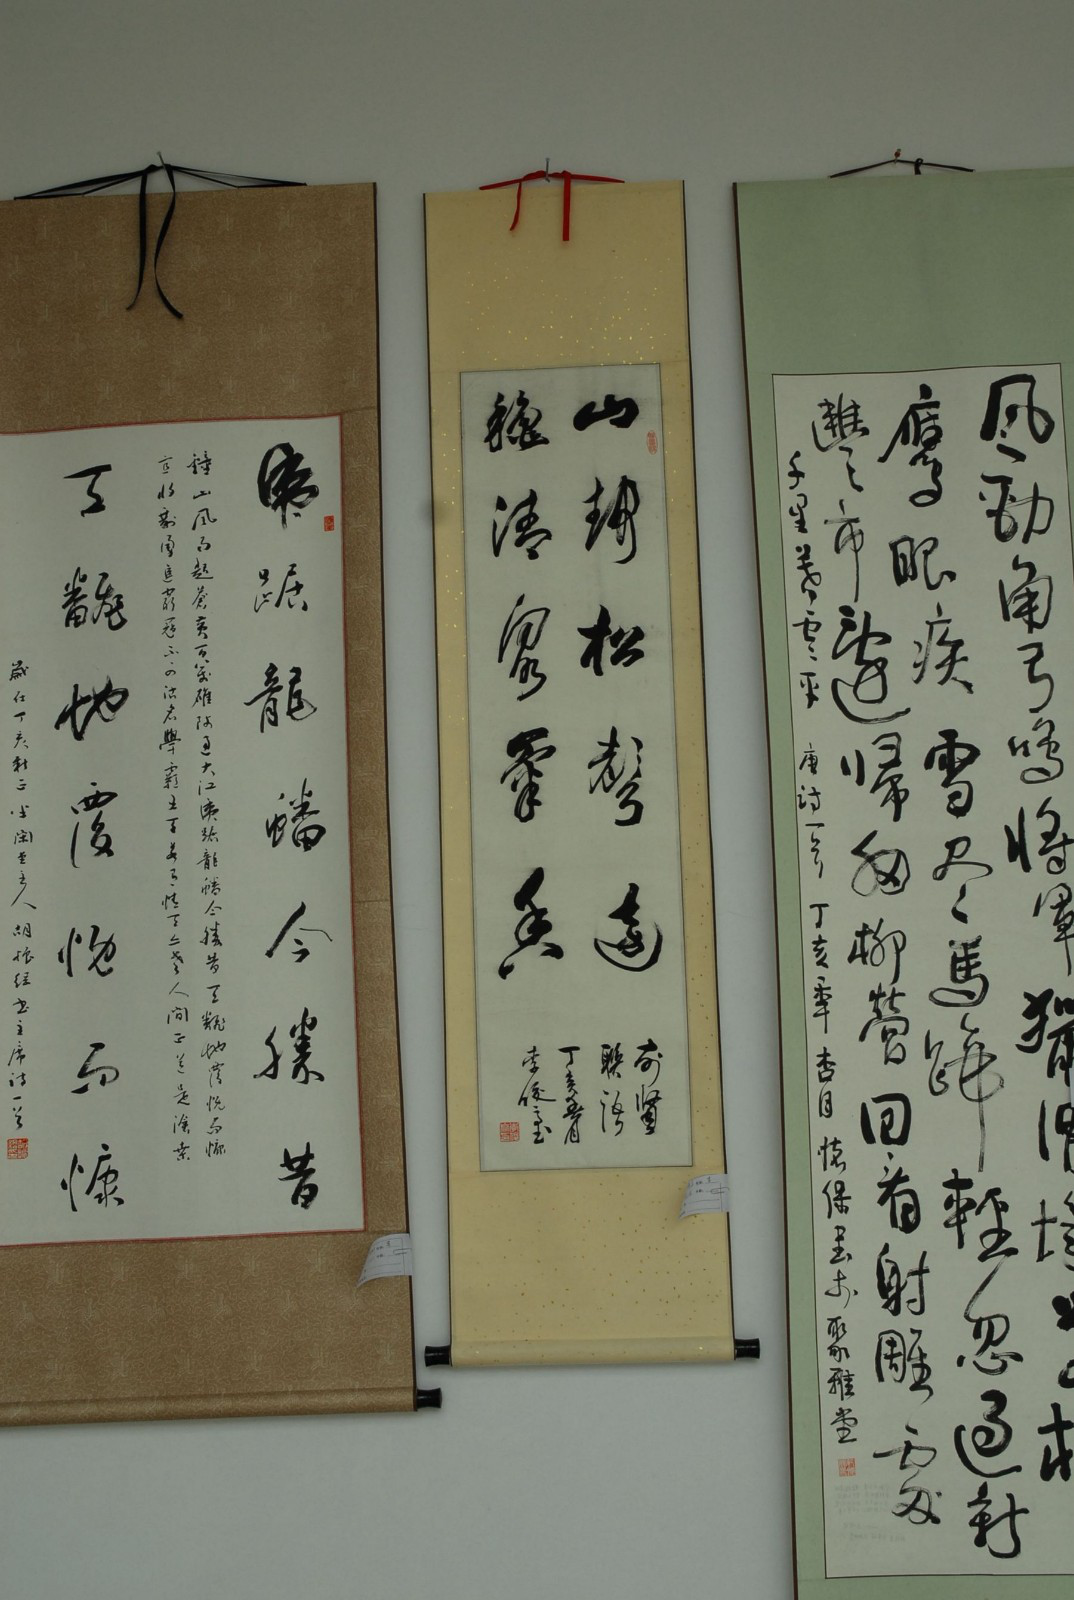 虎踞龍蟠今勝昔
鍾山風雨起蒼黃百萬雄師過大江虎踞龍蟠今勝昔天翻地覆慨而慷
宜將剩勇追窮寇不可沽名學霸王天若有情天亦老人間正道是滄桑
天翻地覆慨而慷
歲在丁亥秋
主人胡振
書主席詩一首
山静松聲遠
秋清泉氣香
前賢
聯語
丁亥春月
李俊玉
風勁角弓鳴將軍獵渭城草枯
鷹眼疾雪尽馬蹄輕忽過新
豐市還歸細柳營回看射雕處
千里暮雲平 唐詩一首 丁亥年杏月 懷保書於聚雅堂